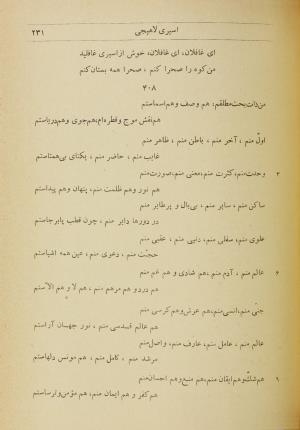 اسیری لاهیجی
۲۳۱
ای غافلان، ای غافلان، خوش از اسیری غافلید
من کوه را صحرا کنم ، صحرا همه بستان کنم
۴۰۸
من ذات بحت مطلقم، هم وصف و هم اسماستم
هم نفش موج و قطره‌ام، هم جوی و هم دریاستم
اول منم ، آخر منم ، باطن منم ، ظاهر منم
غایب منم ، حاضر منم ، یکتای بی‌همتاستم
۳ وحدت منم، کثرت منم، معنی منم، صورت منم
هم نور و هم ظلمت منم ، پنهان وهم پیداستم
ساکن منم ، سایر منم ، بی‌بال و پر طایر منم
در دورها دایر منم ، چون قطب پابرجاستم
علوی منم، سفلی منم ، دنیی منم ، عقبی منم
حجت منم ، دعوی منم ، عین همه اشیاستم
۶ عالم منم ، آدم منم ، هم شادی و هم غم منم
هم درد و هم مرهم منم ، هم لا و هم الاستم
جنی منم، انسی منم، هم عرش و هم کرسی منم
هم عالم قدسی منم ، نور جهان آراستم
عالم منم ، عامل منم ، عارف منم ، واصل منم
مرشد منم ، کامل منم ، هم مونس دلهاستم
۹ هم شك و هم ایقان منم، هم منبع و هم احسان منم
هم کفر و هم ایمان منم، هم مؤمن و ترساستم